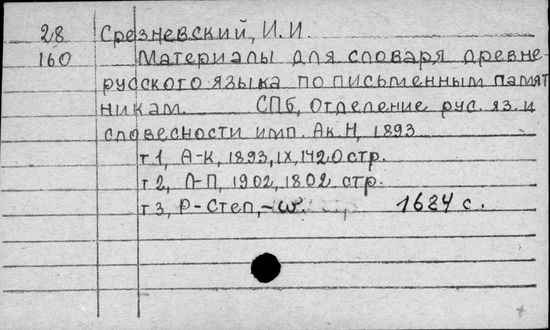 28 Срезневский, И. И.
160 Материалы для словаря древне-
русского языка по письменным памят
никам. СПб, Отделение рус. яз. и
словесности имп. Ак. Н, 1893
т 1, А-К, 1893, IX, 1420 стр.
т 2, Л-П, 1902, 1802 стр.
т 3, Р-Степ, -ѡ. 1684 с.